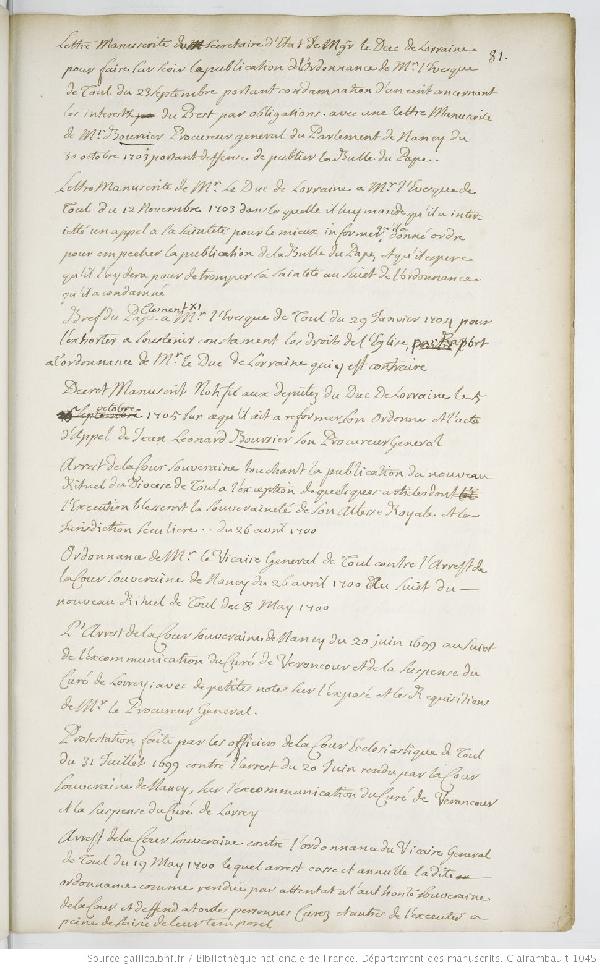 81.
Lettre Manuscrite du secretaire d'Etat de Mgr le Duc de Lorraine
pour faire surseoir la publication d'Ordonnance de Mr l'Evêque
de Toul du 23 Septembre portant condamnation d'un écrit concernant
les interests du Prest par obligations. avec une lettre Manuscrite
de Mr. Bourcier Procureur general du Parlement de Nancy du
30 octobre 1703 portant deffense de publier la Bulle du Pape..
Lettre Manuscrite de Mr. Le Duc de Lorraine a Mr. l'Evecque de
Toul du 12 Novembre 1703 dans laquelle il luy mande qu'il a inter-
jetté un appel a sa sainteté, pour le mieux informer, donné ordre
pour empecher la publication de la Bulle du Pape, & qu'il espere
qu'il l'aydera pour detromper sa sainteté au sujet de l'ordonnance
qu'il a condamné
Bref du Pape Clement XI a Mr l'Evecque de Toul du 29 Janvier 1704 pour
l'exhorter a soustenir constament les droits de l'Eglise, par Raport
a l'ordonnence de Mr. le Duc de Lorraine qui y est contraire
Decret Manuscrit Notifié aux deputez du Duc de Lorraine le 5
octobre 1705 sur ce qu'il ait a reformer son Ordonne et l'acte
d'Appel de Jean Léonard Bourcier son Procureur General
Arrest de la Cour souveraine touchant la publication du nouveau
Rituel du Diocese de Toul a l'exception de quelques articles dont
l'Execution blesseroit la souveraineté de son Altesse Royale. & la
Jurisdiction seculiere.. du 26 avril 1700
Ordonnance de Mr. le Vicaire General de Toul contre l'Arrest de
la Cour souveraine de Nancy du 26 avril 1700 au sujet du —
nouveau Rituel de Toul du 8 May 1700
L'Arrest de la Cour souveraine de Nancy du 20 juin 1699 au sujet
de l'excommunication du Curé de Veroncour et de la suspense du
Curé de Lorrey; avec de petites notes sur l'exposé et les Requisitions
de Mr. le Procureur General.
Protestation faite par les officiers de la Cour Eclesiastique de Toul
du 31 Juillet 1699 contre l'arrest du 20 Juin rendu par la Cour
souveraine de Nancy, sur l'excommunication du Curé de Veroncour
et la suspense du Curé de Lorrey
Arrest de la Cour souveraine contre l'ordonnance du Vicaire General
de Toul du 19 May 1700 lequel arrest casse et annulle ladite
ordonnance comme rendüe par attentat a l'authorité souveraine
de la Cour et deffend a toutes personnes Curez et autres de l'executer a
peine de saisie de leur temporel
Source gallica.bnf.fr / Bibliothèque nationale de France. Département des manuscrits. Clairambault 1045